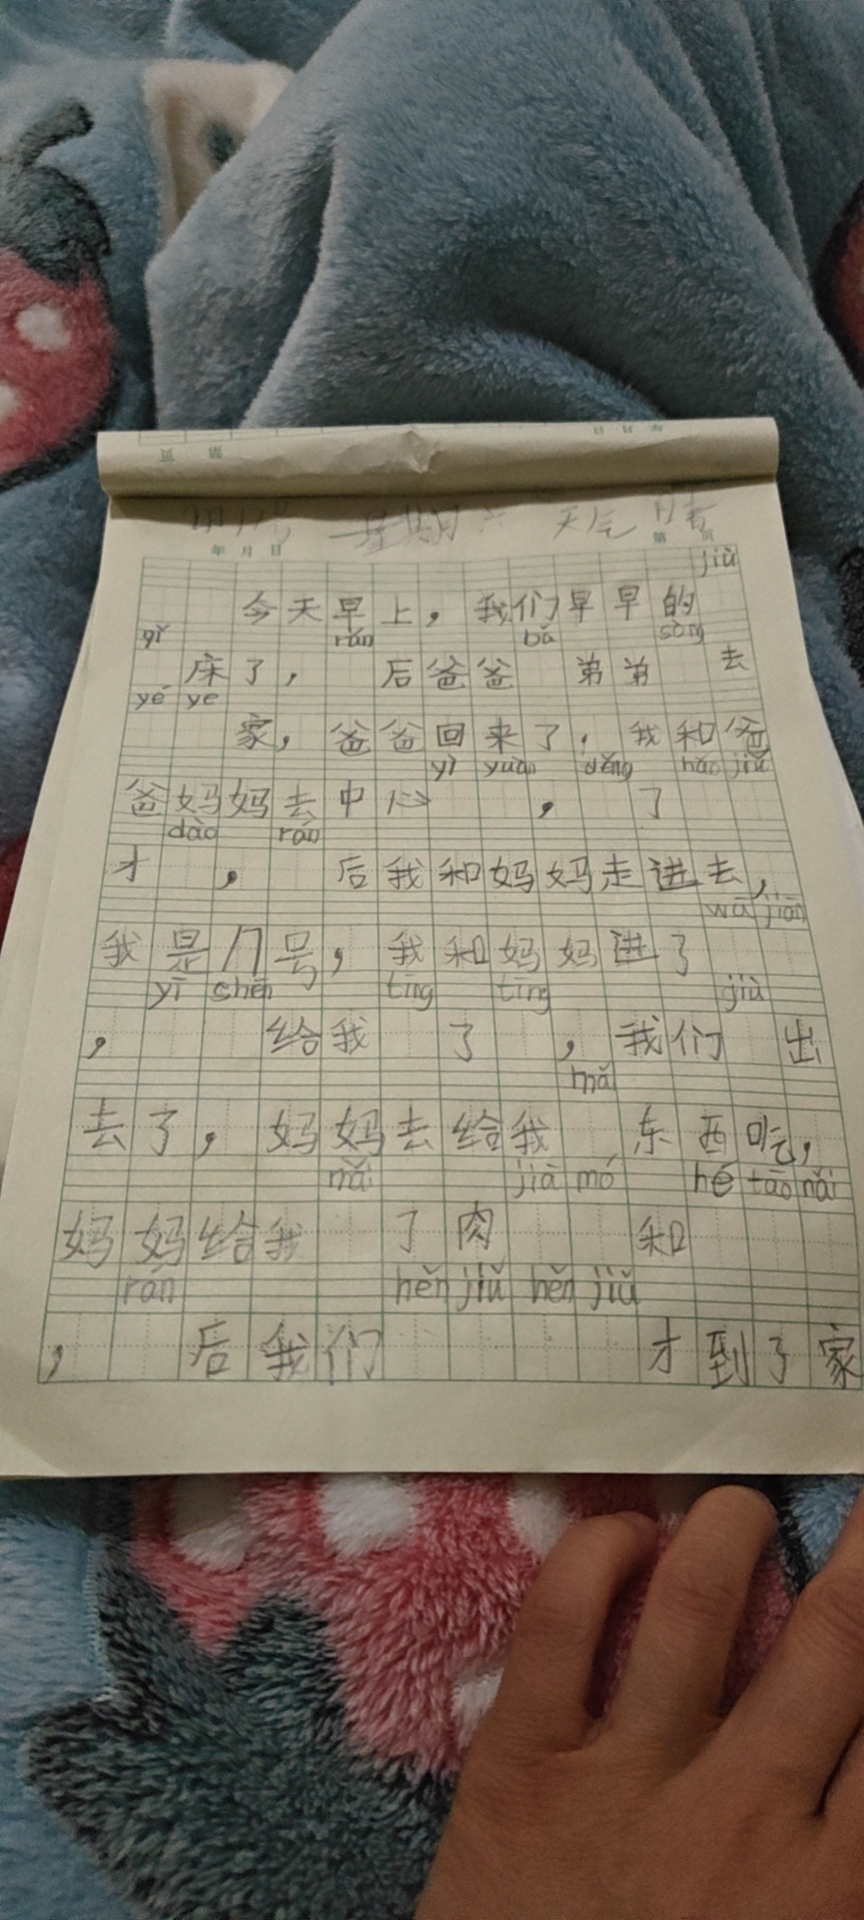 星期六 天气 晴
年 月 日 第 页
jiù
今天早上，我们早早的
qǐ rán bǎ sòng
床了， 后爸爸 弟弟 去
yé ye
家，爸爸回来了，我和爸
yī yuàn děng hǎo jiǔ
爸妈妈去中心 ， 了
dào rán
才 ， 后我和妈妈走进去，
wā jiān
我是几号，我和妈妈进了
yī shēn tīng tīng jiù
， 给我 了 ，我们 出
mǎ
去了，妈妈去给我 东西吃，
mǎ jiā mó hé táo nǎi
妈妈给我 了肉 和
rán hěn jiǔ hěn jiǔ
， 后我们 才到了家